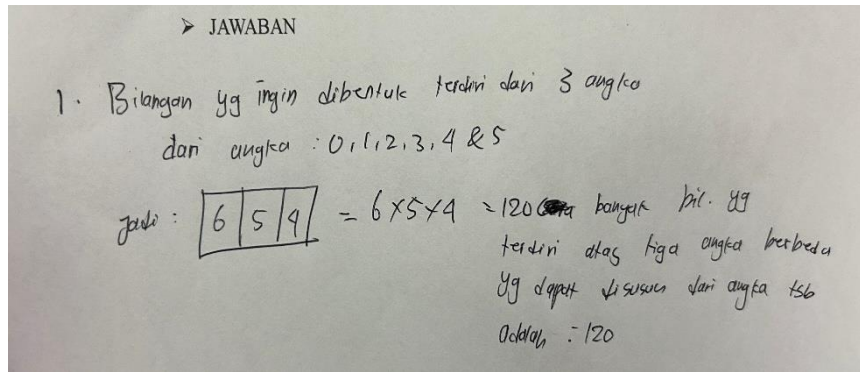 ➤ JAWABAN
1. Bilangan yg ingin dibentuk terdiri dari 3 angka
dari angka : 0,1,2,3,4 & 5
Jadi : 6 5 4 = 6×5×4 = 120 banyak bil. yg
terdiri atas tiga angka berbeda
yg dapat disusun dari angka tsb
adalah = 120